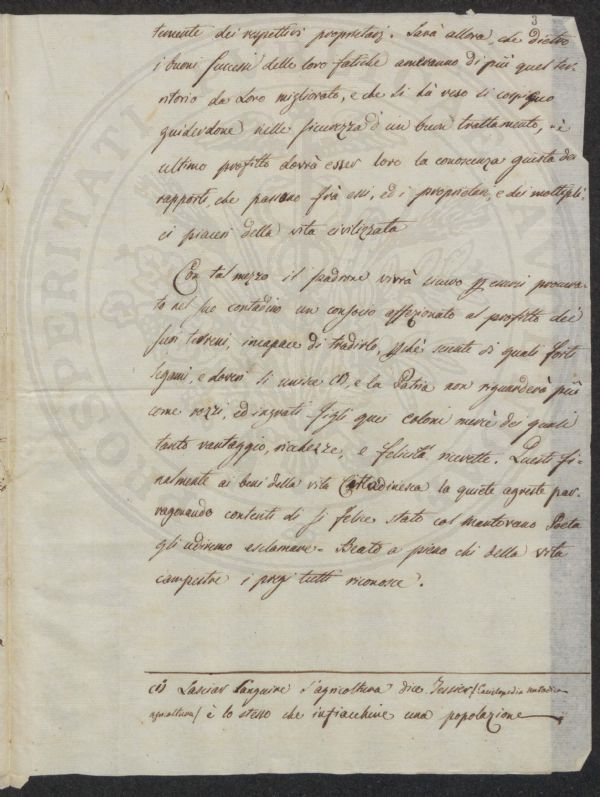 3
temente dei respettivi proprietarj. Sarà allora, che dietro
i buoni successi delle loro fatiche ameranno di più quel ter-
ritorio da Loro migliorato, e che si dà reso sì cospicuo
guiderdone nelle sicurezza d'un buon trattamento, e
ultimo profitto dovrà esser loro la conoscenza giusta dei
rapporti, che passano frà essi, ed i proprietarj, e dei moltipli-
ci piaceri della vita civilizzata
Con tal mezzo il padrone vivrà sicuro per essersi procura-
to nel suo contadino un consocio affezionato al profitto dei
suoi terreni, incapace di tradirlo, perchè sciente di quali forti
legami, e doveri si unisce (1), e la Patria non riguarderà più
come rozzi, ed ingrati figli quei coloni mercè dei quali
tanto vantaggio, ricchezze, e felicità ricevette. Questi fi-
nalmente ai beni della vita Cittadinesca la quiete agreste par-
ragonando contenti di sì felice stato col Mantovano Poeta
gli udiremo esclamare = Beato a pieno chi della vita
campestre i pregj tutti riconosce.
(1) Lasciar languire l'agricoltura dice Tessier (Enciclopedia metodica
agricoltura) è lo stesso che infiacchire una popolazione
PROSPERITATI